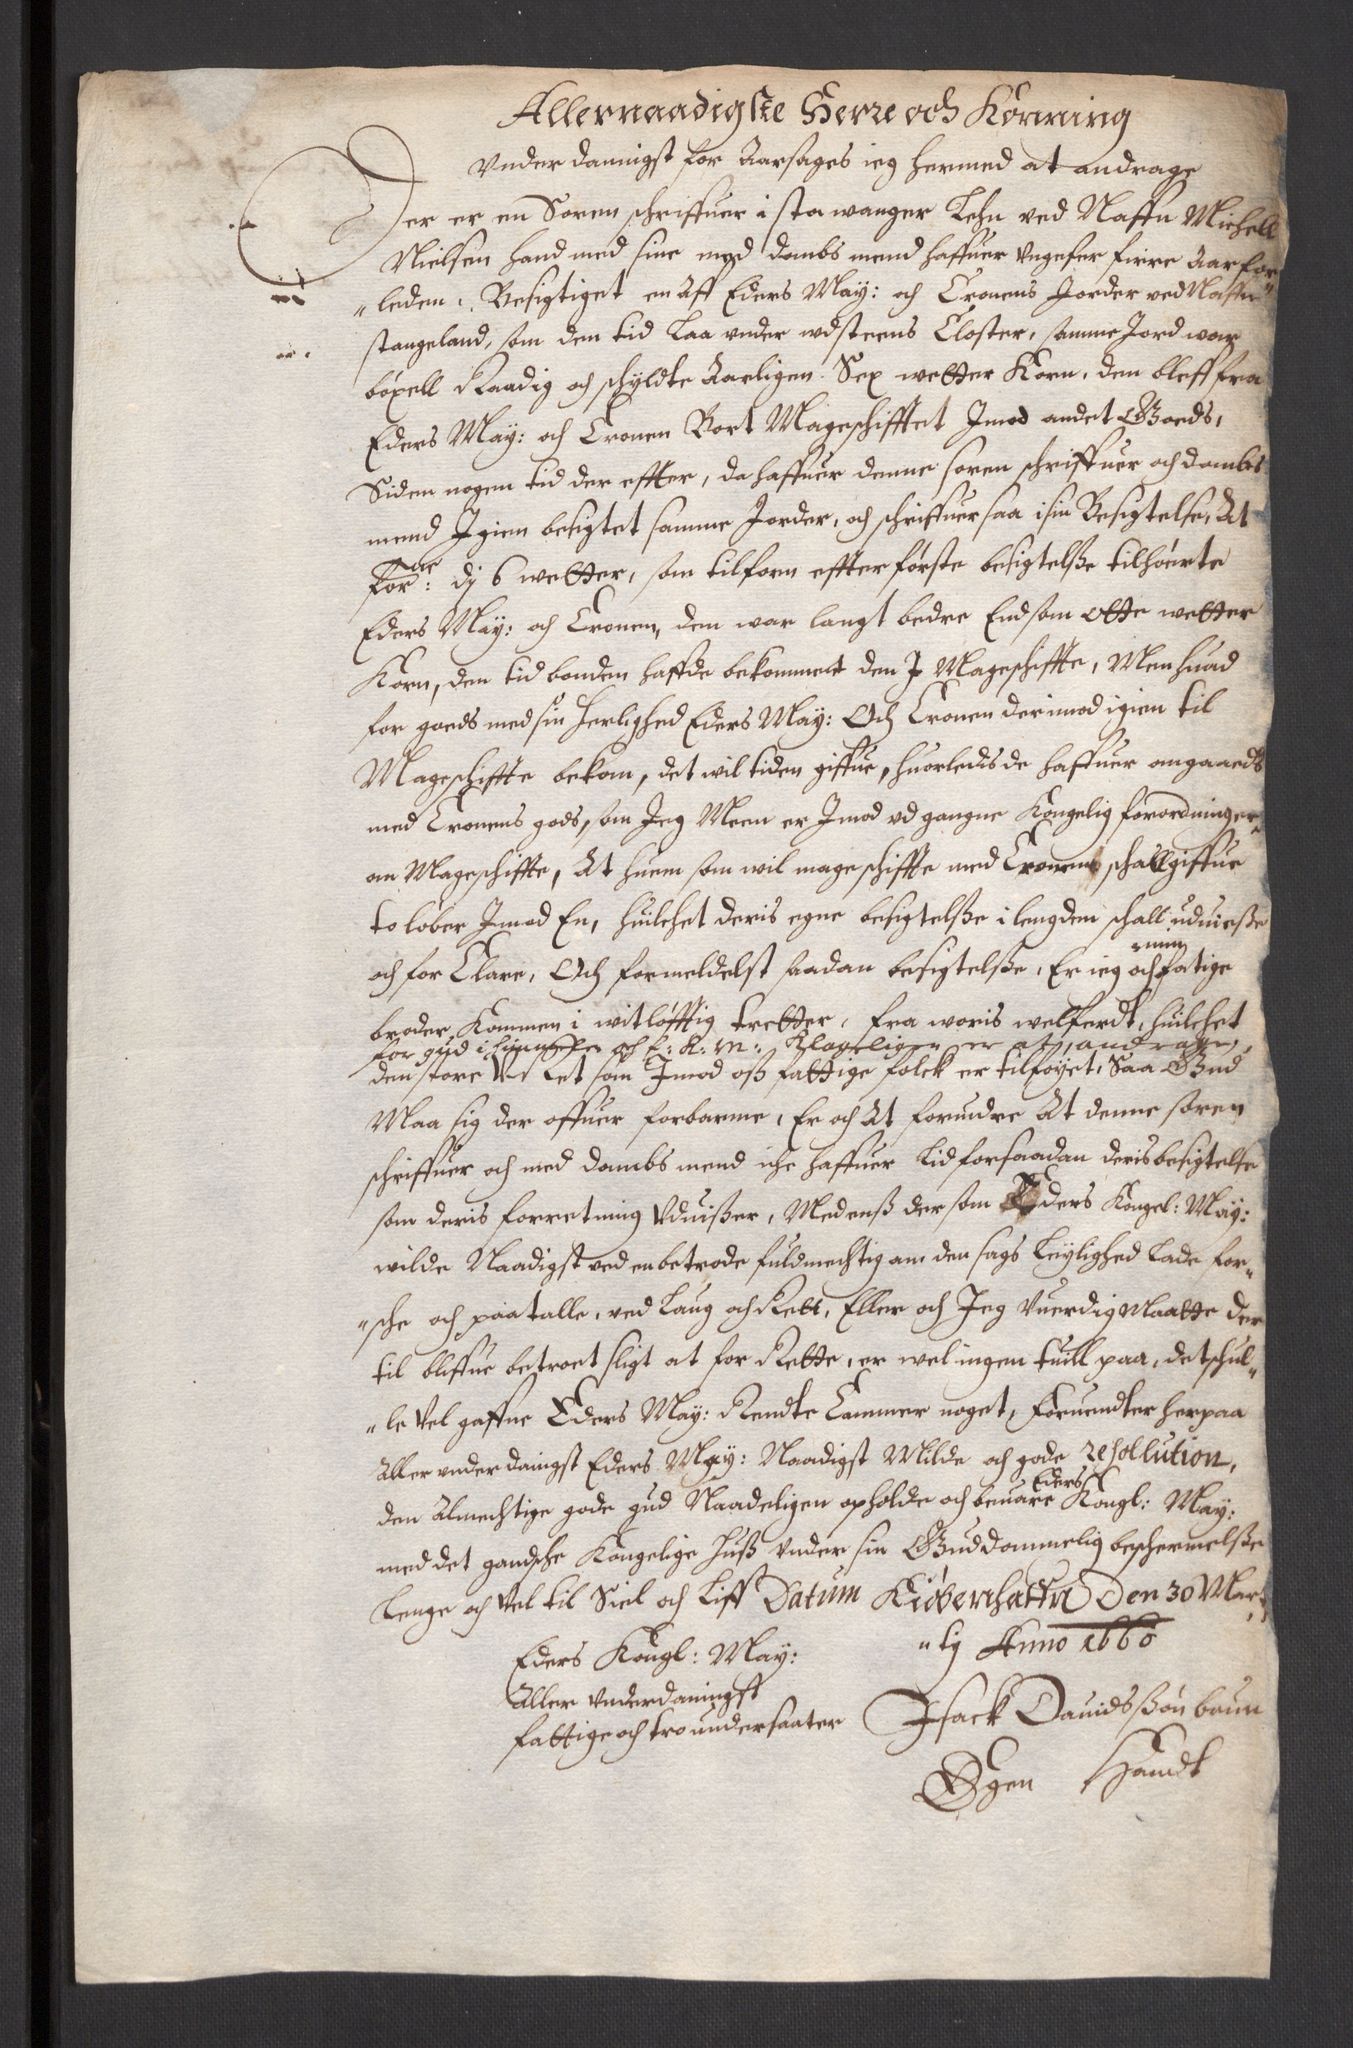 Allernaadigste Herre och Konning
Vnder danigst for Aarsages ieg hermed at andrage
Der er en Soren schriffuer i Stawanger Lehn ved Naffn Michell
Nielsen hand med sine med dombs mend haffuer vngefer firre Aar for
"leden, Besigtiget en Aff Eders May: och Cronens Jorder ved Naffn
stangeland, som den tid Laa vnder vdsteens Closter, samme Jord war
böxell Raadig och schyldte Aarligen Sex wetter Korn, den bleff fra
Eders May: och Cronen Bort Mageschifftet Jmod andet Goeds,
Siden nogen tid der effter, da haffuer denne soren schriffuer och dombs
mend Igien besigtet samme Jorder, och schriffuer saa i sin Besigtelse, At
forne: dj 6 wetter, som tilforn effter förste besigtelße tilhörte
Eders May: och Cronen, den war langt bedre End som otte wetter
Korn, den tid bonden haffde bekommet den J Mageschiffte, Men huad
for goeds med sin Herlighed Eders May: Och Cronen der imod igien til
Mageschiffte bekom, det wil tiden giffue, huorledis de haffuer omgaaeds
med Cronens gods, som Jeg Meen er Jmod vdgangne Kongelig forordninger
om Mageschiffte, At huem som wil mageschiffte med Cronens schall giffue
to löber Jmod En, huilchet deris egne besigtelße i lengden schall uduiesse
och for Clare, Och formeldelst saadan besigtelße, Er ieg och min fatige
broder Kommen i witlöfftig tretter, fra woris welferdt, huilchet
for gud i himmelen och E: K: M: Klageligen er at andrage,
den store Vret som Jmod oß fattige folck er tilföyet, Saa Gud
Maa sig der offuer forbarme, Er och At forundre At denne soren
schriffuer och med dombs mend iche haffuer Lid for saadan deris besigtelse
som deris forretning Vduißer, Medenß der som Eders Kongel: May:
wilde Naadigst ved en betrode fuldmechtig om den sags Leylighed Lade for"
"sche och paatalle, ved Laug och Rett, Eller och Jeg Vuerdig Maatte der
til bliffue betroet sligt at for Rette, er wel ingen tuill paa, det schul"
"le Vel gaffne Eders May: Rendte Cammer noget, Foruendter herpaa
Aller vnderdaingst Eders May: Naadigst Milde och gode resollution,
den Almechtige gode gud Naadeligen opholde och beuare Eders Kongl: May:
med det gandsche Kongelige Huß Vnder sin Guddommelig beschermelße
Lenge och Vel til Siel och Liff Datum Kiöbenhaffn Den 30 Mar"
"tij Anno 1660
Eders Kongl: May:
Aller vnderdaningst
fattige och tro undersaater
Isack Dauidsßön baun
Egen Handt